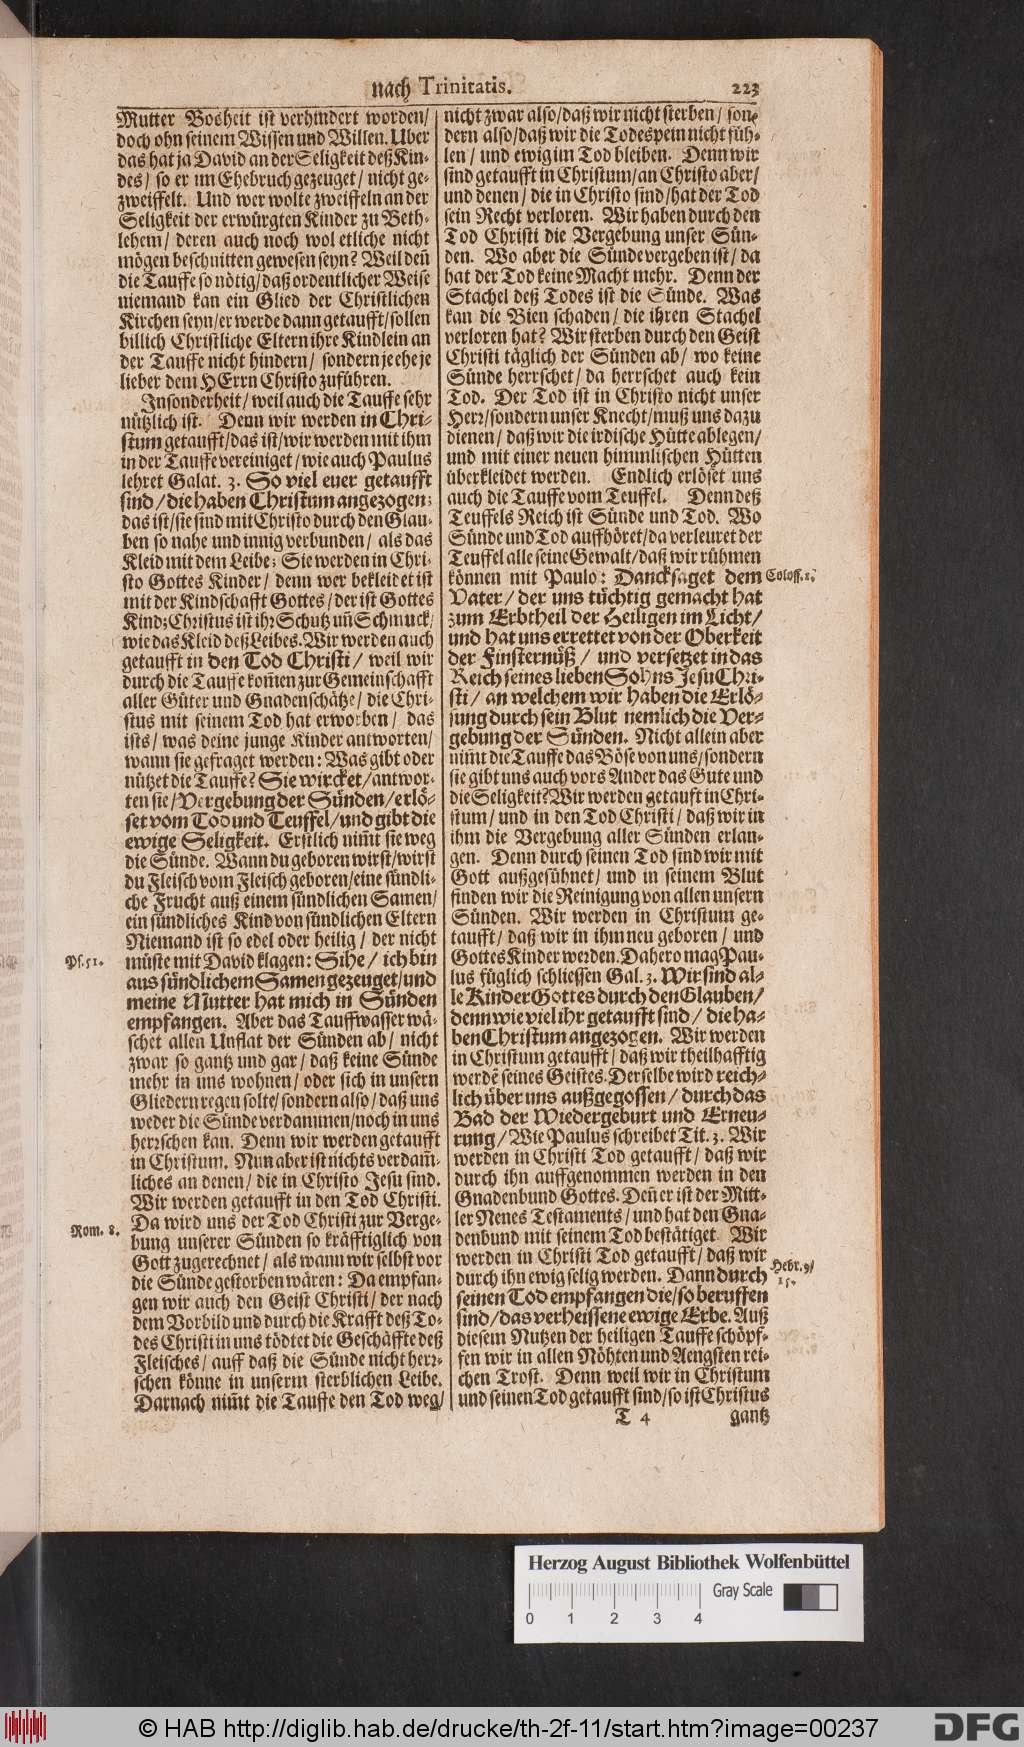 nach Trinitatis.
223
Mutter Boßheit ist verhindert worden/
doch ohn seinem Wissen und Willen. Uber
das hat ja David an der Seligkeit deß Kin-
des/ so er im Ehebruch gezeuget/ nicht ge-
zweiffelt. Und wer wolte zweiffeln an der
Seligkeit der erwürgten Kinder zu Beth-
lehem/ deren auch noch wol etliche nicht
mögen beschnitten gewesen seyn? Weil deñ
die Tauffe so nötig/ daß ordentlicher Weise
niemand kan ein Glied der Christlichen
Kirchen seyn/ er werde dann getaufft/ sollen
billich Christliche Eltern ihre Kindlein an
der Tauffe nicht hindern/ sondern je ehe je
lieber dem HErrn Christo zuführen.
Insonderheit/ weil auch die Tauffe sehr
nützlich ist. Denn wir werden in Chri-
stum getaufft/ das ist/ wir werden mit ihm
in der Tauffe vereiniget/ wie auch Paulus
lehret Galat. 3. So viel euer getaufft
sind/ die haben Christum angezogen;
das ist/ sie sind mit Christo durch den Glau-
ben so nahe und innig verbunden/ als das
Kleid mit dem Leibe; Sie werden in Chri-
sto Gottes Kinder/ denn wer bekleidet ist
mit der Kindschafft Gottes/ der ist Gottes
Kind; Christus ist ihr Schutz uñ Schmuck/
wie das Kleid deß Leibes. Wir werden auch
getaufft in den Tod Christi/ weil wir
durch die Tauffe kom̃en zur Gemeinschafft
aller Güter und Gnadenschätze/ die Chri-
stus mit seinem Tod hat erworben/ das
ists/ was deine junge Kinder antworten/
wann sie gefraget werden: Was gibt oder
nützet die Tauffe? Sie wircket/ antwor-
ten sie/ Vergebung der Sünden/ erlö-
set vom Tod und Teuffel/ und gibt die
ewige Seligkeit. Erstlich nim̃t sie weg
die Sünde. Wann du geboren wirst/ wirst
du Fleisch vom Fleisch geboren/ eine sündli-
che Frucht auß einem sündlichen Samen/
ein sündliches Kind von sündlichen Eltern
Niemand ist so edel oder heilig/ der nicht
müste mit David klagen: Sihe/ ich bin
aus sündlichem Samen gezeuget/ und
meine Mutter hat mich in Sünden
empfangen. Aber das Tauffwasser wä-
schet allen Unflat der Sünden ab/ nicht
zwar so gantz und gar/ daß keine Sünde
mehr in uns wohnen/ oder sich in unsern
Gliedern regen solte/ sondern also/ daß uns
weder die Sünde verdammen/ noch in uns
herrschen kan. Denn wir werden getaufft
in Christum. Nun aber ist nichts verdam̃-
liches an denen/ die in Christo Jesu sind.
Wir werden getaufft in den Tod Christi.
Da wird uns der Tod Christi zur Verge-
bung unserer Sünden so kräfftiglich von
Gott zugerechnet/ als wann wir selbst vor
die Sünde gestorben wären: Da empfan-
gen wir auch den Geist Christi/ der nach
dem Vorbild und durch die Krafft deß To-
des Christi in uns tödtet die Geschäffte deß
Fleisches/ auff daß die Sünde nicht herr-
schen könne in unserm sterblichen Leibe.
Darnach nim̃t die Tauffe den Tod weg/
Ps. 51.
Rom. 8.
nicht zwar also/ daß wir nicht sterben/ son-
dern also/ daß wir die Todespein nicht füh-
len/ und ewig im Tod bleiben. Denn wir
sind getaufft in Christum/ an Christo aber/
und denen/ die in Christo sind/ hat der Tod
sein Recht verloren. Wir haben durch den
Tod Christi die Vergebung unser Sün-
den. Wo aber die Sünde vergeben ist/ da
hat der Tod keine Macht mehr. Denn der
Stachel deß Todes ist die Sünde. Was
kan die Bien schaden/ die ihren Stachel
verloren hat? Wir sterben durch den Geist
Christi täglich der Sünden ab/ wo keine
Sünde herrschet/ da herrschet auch kein
Tod. Der Tod ist in Christo nicht unser
Herr/ sondern unser Knecht/ muß uns dazu
dienen/ daß wir die irdische Hütte ablegen/
und mit einer neuen himmlischen Hütten
überkleidet werden. Endlich erlöset uns
auch die Tauffe vom Teuffel. Denn deß
Teuffels Reich ist Sünde und Tod. Wo
Sünde und Tod auffhöret/ da verleuret der
Teuffel alle seine Gewalt/ daß wir rühmen
können mit Paulo: Dancksaget dem
Vater/ der uns tüchtig gemacht hat
zum Erbtheil der Heiligen im Licht/
und hat uns errettet von der Oberkeit
der Finsternüß/ und versetzet in das
Reich seines lieben Sohns Jesu Chri-
sti/ an welchem wir haben die Erlö-
sung durch sein Blut nemlich die Ver-
gebung der Sünden. Nicht allein aber
nim̃t die Tauffe das Böse von uns/ sondern
sie gibt uns auch vors Ander das Gute und
die Seligkeit? Wir werden getauft in Chri-
stum/ und in den Tod Christi/ daß wir in
ihm die Vergebung aller Sünden erlan-
gen. Denn durch seinen Tod sind wir mit
Gott außgesühnet/ und in seinem Blut
finden wir die Reinigung von allen unsern
Sünden. Wir werden in Christum ge-
taufft/ daß wir in ihm neu geboren/ und
Gottes Kinder werden. Dahero mag Pau-
lus füglich schliessen Gal. 3. Wir sind al-
le Kinder Gottes durch den Glauben/
denn wie viel ihr getaufft sind/ die ha-
ben Christum angezogen. Wir werden
in Christum getaufft/ daß wir theilhafftig
werdẽ seines Geistes. Derselbe wird reich-
lich über uns außgegossen/ durch das
Bad der Wiedergeburt und Erneu-
rung/ Wie Paulus schreibet Tit. 3. Wir
werden in Christi Tod getaufft/ daß wir
durch ihn auffgenommen werden in den
Gnadenbund Gottes. Deñ er ist der Mitt-
ler Neues Testaments/ und hat den Gna-
denbund mit seinem Tod bestätiget. Wir
werden in Christi Tod getaufft/ daß wir
durch ihn ewig selig werden. Dann durch
seinen Tod empfangen die/ so beruffen
sind/ das verheissene ewige Erbe. Auß
diesem Nutzen der heiligen Tauffe schöpf-
fen wir in allen Nöhten und Aengsten rei-
chen Trost. Denn weil wir in Christum
und seinen Tod getaufft sind/ so ist Christus
Coloss. 1.
Hebr. 9/
15.
T 4
gantz
Herzog August Bibliothek Wolfenbüttel
Gray Scale
0 1 2 3 4
© HAB http://diglib.hab.de/drucke/th-2f-11/start.htm?image=00237
DFG